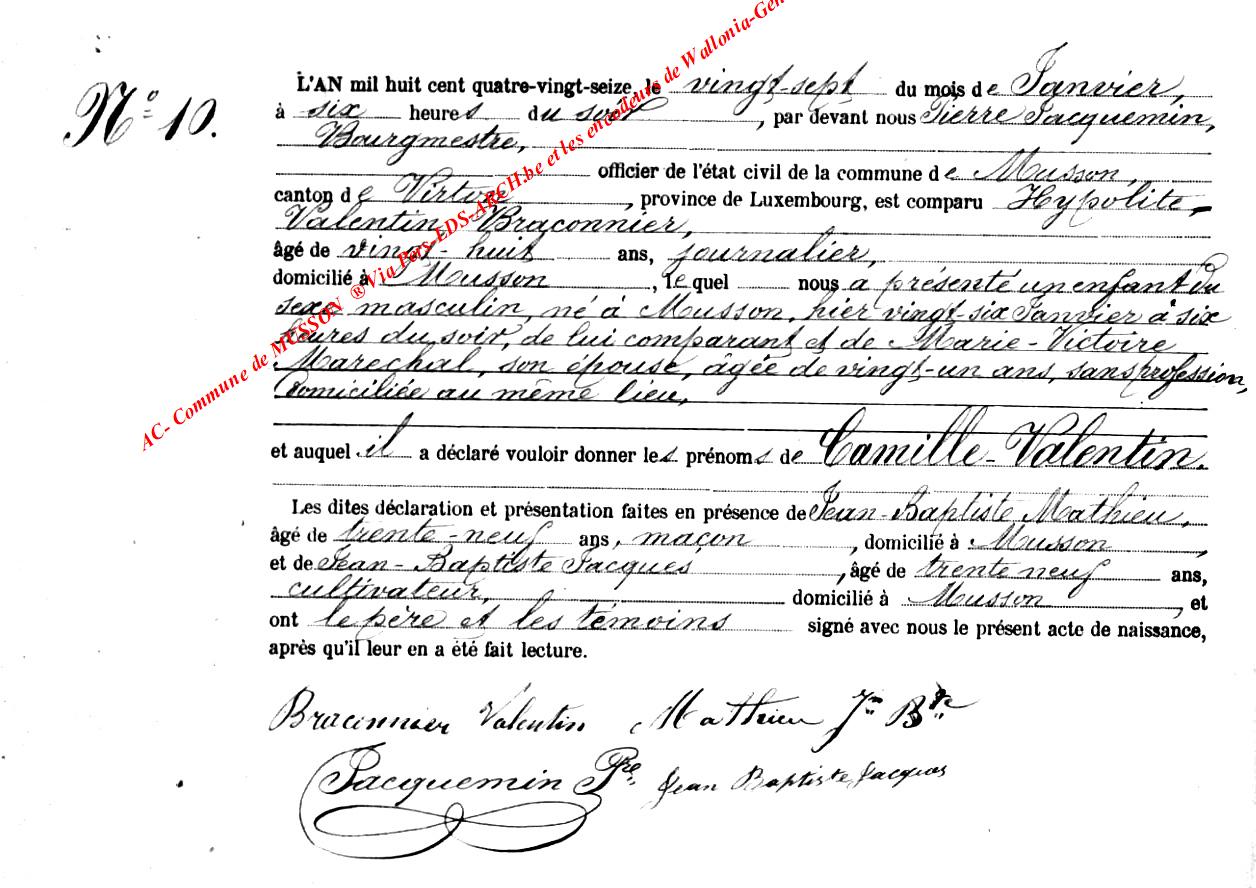 AC- Commune de MUSSON ® Via Pers-EDS-ARCH.be et les encodeurs de Wallonia-Gen
N° 10.
L'AN mil huit cent quatre-vingt-seize, le vingt-sept du mois de Janvier,
à six heures du soir, par devant nous Pierre Jacquemin,
Bourgmestre,
officier de l'état civil de la commune de Musson,
canton de Virton, province de Luxembourg, est comparu Hypolite-
Valentin Braconnier,
âgé de vingt-huit ans, journalier,
domicilié à Musson, lequel nous a présenté un enfant du
sexe masculin, né à Musson, hier vingt-six Janvier à six
heures du soir, de lui comparant et de Marie-Victoire
Marechal, son épouse, âgée de vingt-un ans, sans profession,
domiciliée au même lieu,
et auquel il a déclaré vouloir donner les prénoms de Camille-Valentin.
Les dites déclaration et présentation faites en présence de Jean-Baptiste Mathieu,
âgé de trente-neuf ans, maçon, domicilié à Musson,
et de Jean-Baptiste Jacques, âgé de trente neuf ans,
cultivateur, domicilié à Musson, et
ont le père et les témoins signé avec nous le présent acte de naissance,
après qu'il leur en a été fait lecture.
Braconnier Valentin Mathieu Jn Bte
Jacquemin Pre. Jean Baptiste Jacques